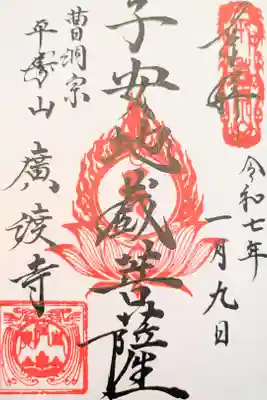 奉拝
令和七年
一月九日
子安地蔵菩薩
曹洞宗
平秀山
廣渡寺